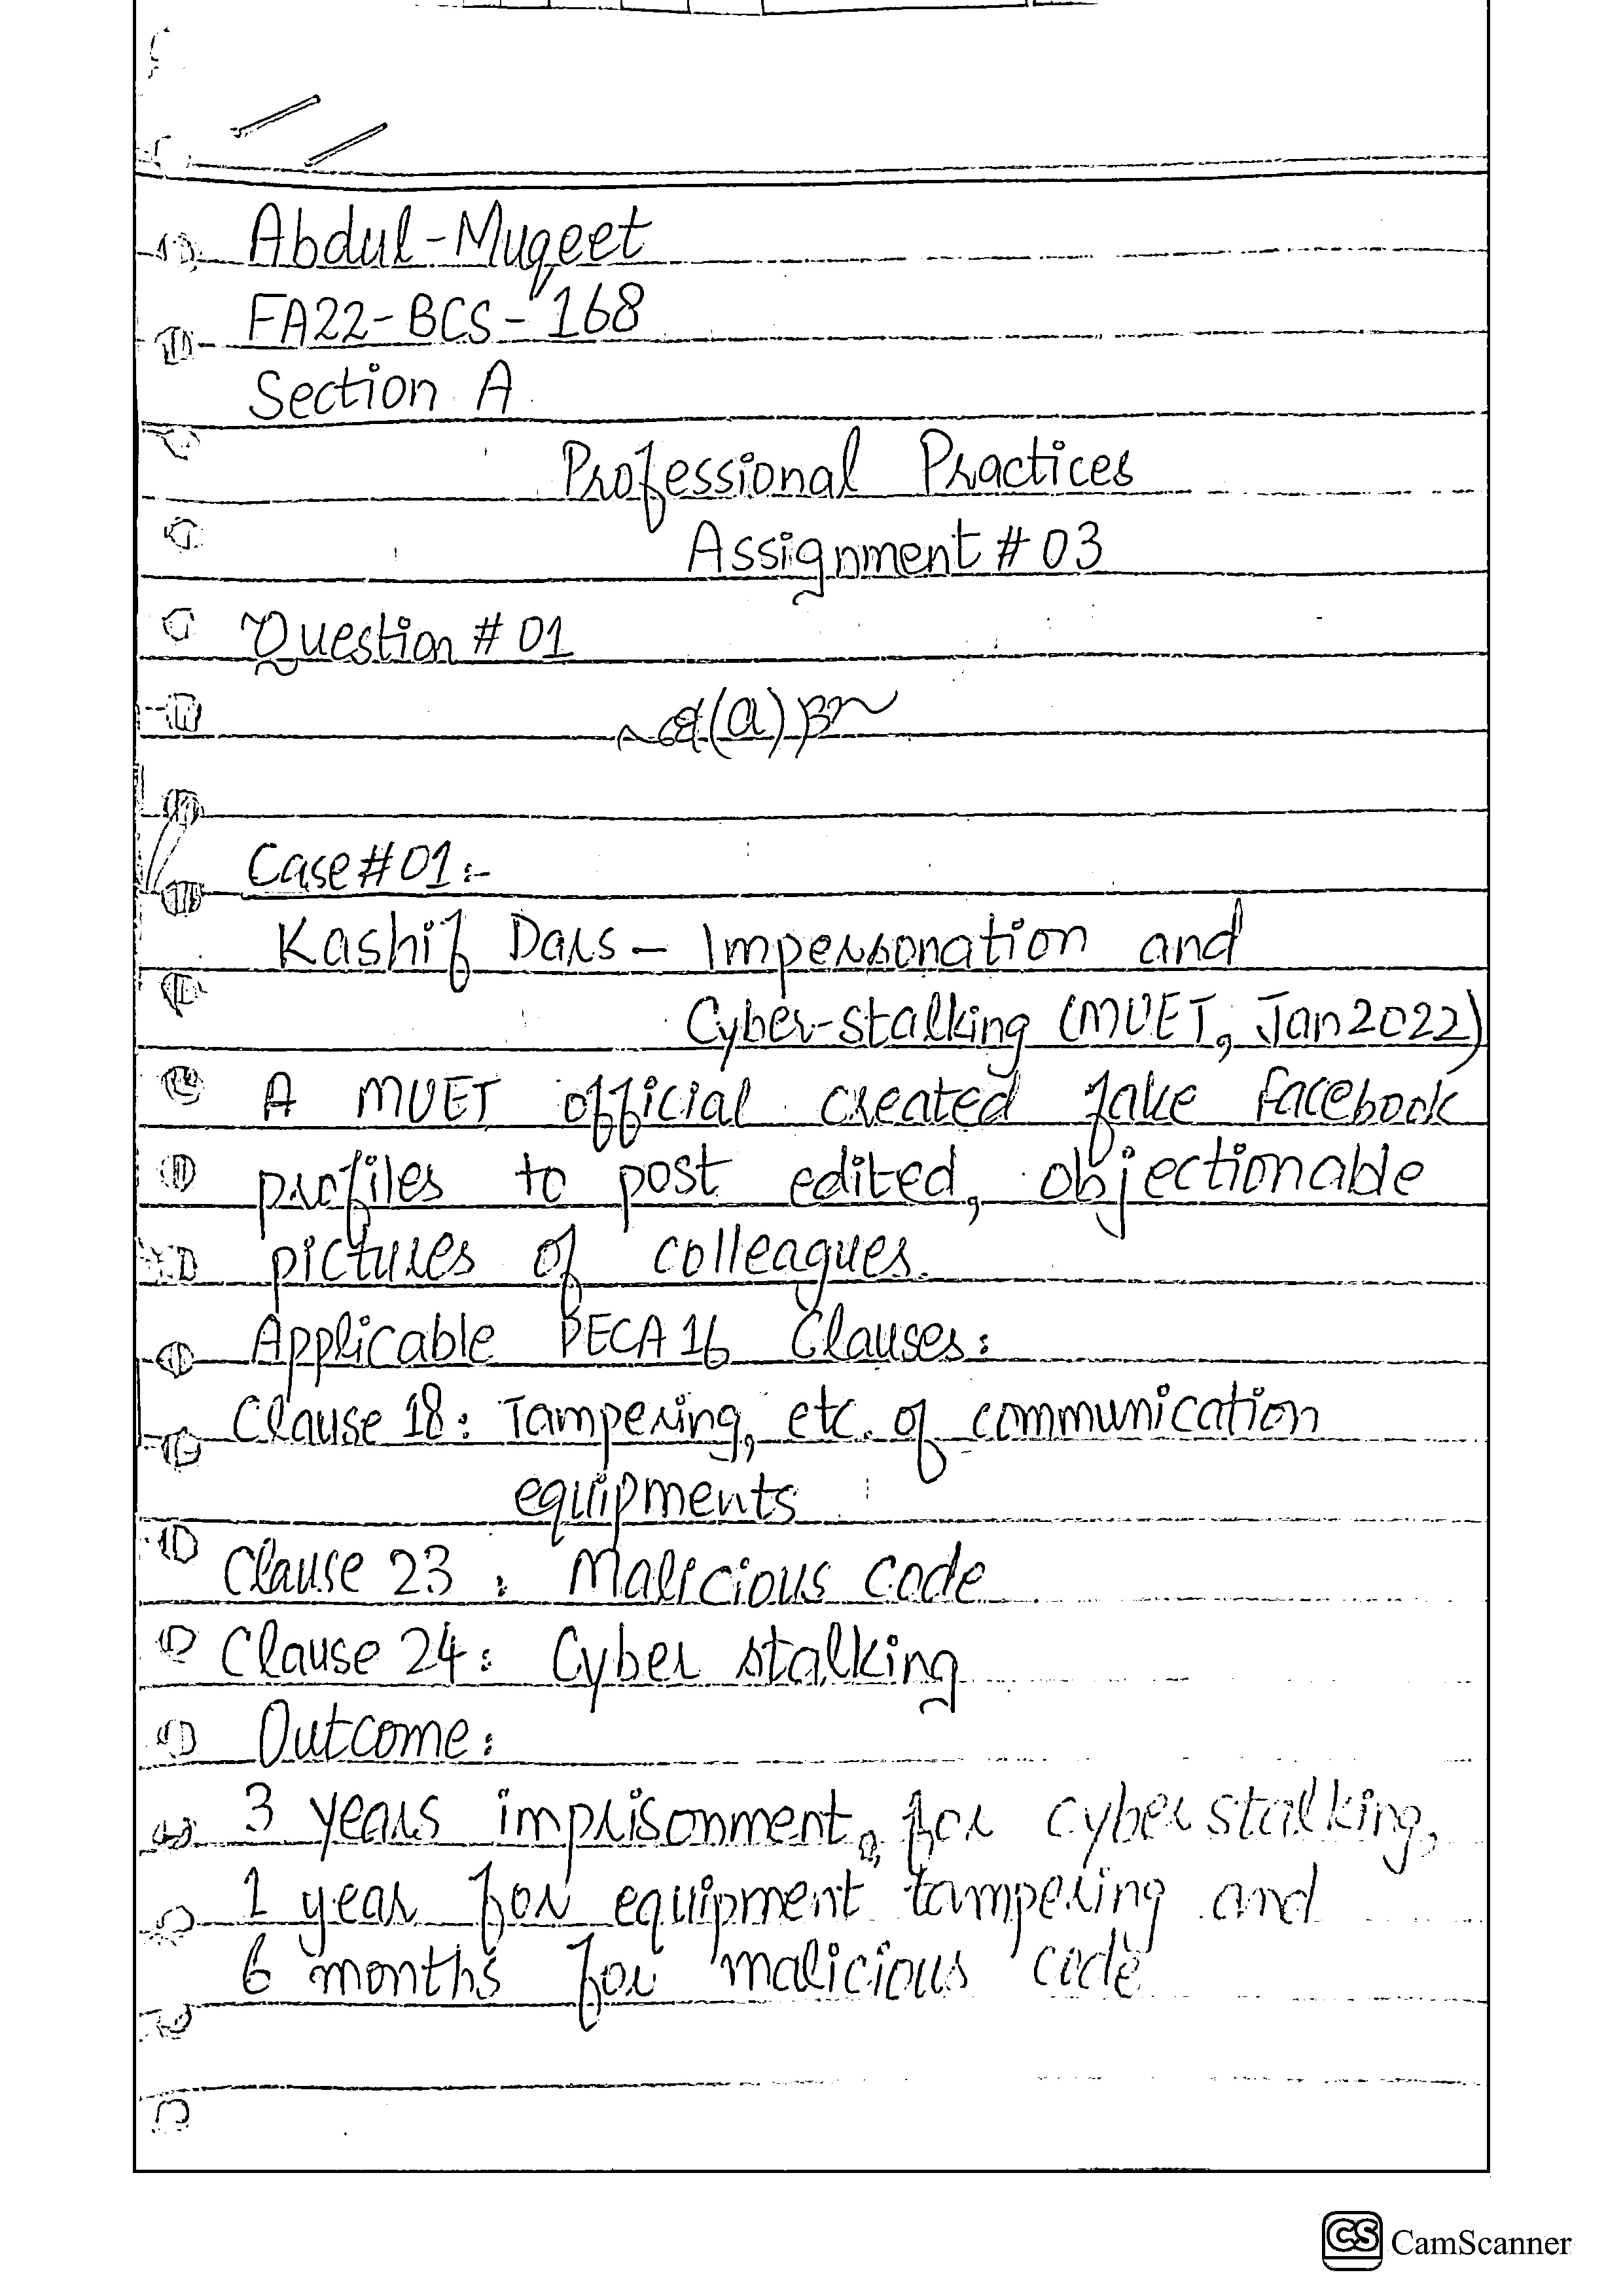 Abdul-Muqeet
FA22-BCS-168
Section A
Professional Practices
Assignment # 03
Question # 01
(a)
Case # 01:-
Kashif Dars - Impersonation and
Cyber-stalking (MUET, Jan 2022)
A MUET official created fake Facebook
profiles to post edited, objectionable
pictures of colleagues.
Applicable PECA 16 Clauses:
Clause 18: Tampering, etc. of communication
equipments
Clause 23: Malicious code
Clause 24: Cyber stalking
Outcome:
3 years imprisonment, for cyber stalking,
1 year for equipment tampering and
6 months for malicious code
CS CamScanner